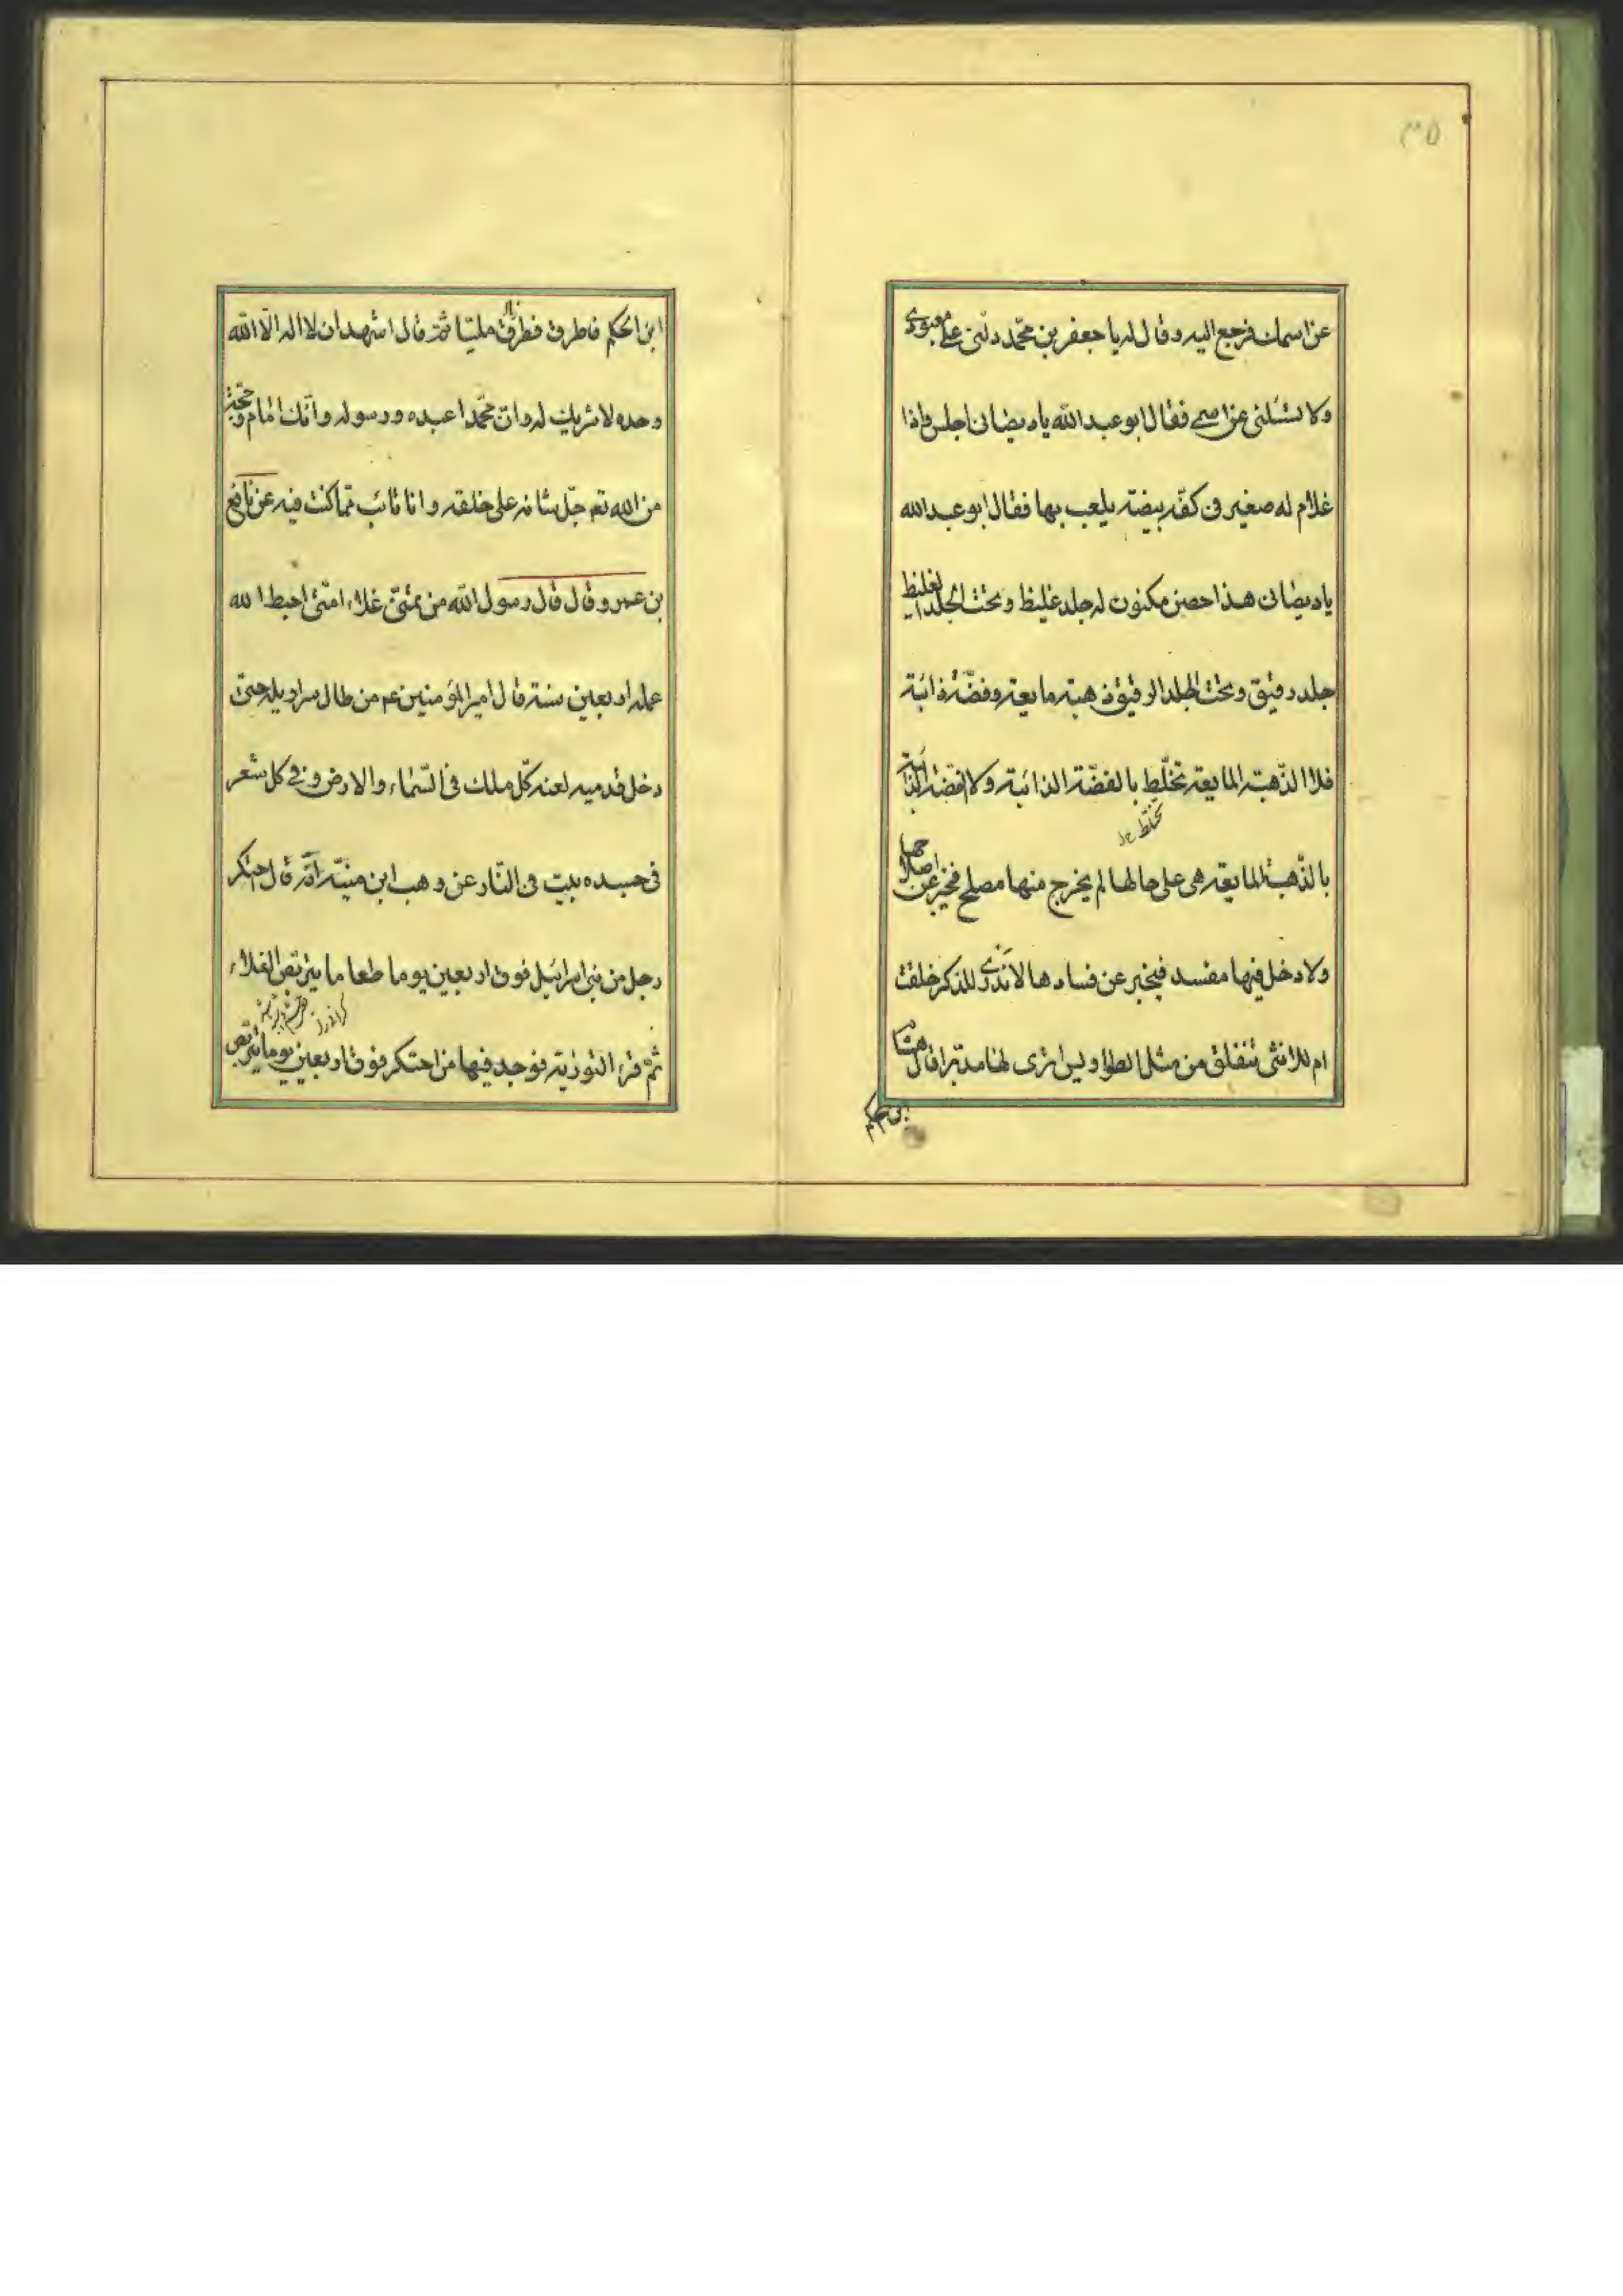 ٣٥
عن اسمك فرجع اليه وقال له يا جعفر بن محمّد دلّنى على معبودى
ولا تسئلنى عن اسمى فقال ابو عبد الله يا ديصانى اجلس واذا
غلام له صغير فى كفّه بيضة يلعب بها فقال ابو عبد الله
يا ديصانى هذا حصن مكنون له جلد غليظ وتحت الجلد الغليظ
جلد رقيق وتحت الجلد الرقيق ذهبة مايعة وفضّة ذائبة
فلا الذّهبة المايعة تختلط بالفضّة الذائبة ولا الفضّة الذائبة
تختلط
بالذّهبة المايعة هى على حالها لم يخرج منها مصلح فيخبر عن اصلاحها
ولا دخل فيها مفسد فيخبر عن فسادها لا تدرى للذكر خلقت
ام للانثى تنفلق من مثل الطواويس اترى لها مدبّرا قال هشام
بن حكم
ابن الحكم فاطرق فطرق مليّا ثمّ قال اشهد ان لا اله الّا الله
وحده لا شريك له وانّ محمّدا عبده ورسوله وانّك امام وحجّة
من الله تعم جلّ شانه على خلقه وانا تائب ممّا كنت فيه عن نافع
بن عمر وقال قال رسول الله من تمنّى غلاء امتى احبط الله
عمله اربعين سنة قال امير المؤمنين عم من طال سراويله حتى
دخل قدميه لعنه كلّ ملك فى السّماء والارض وفى كل شعر
فى جسده بيت فى النّار عن وهب ابن منبّه انّه قال احتكر
رجل من بنى اسرائيل فوق اربعين يوما طعاما يتربّص الغلاء
ثمّ قرء التورية فوجد فيها من احتكر فوق اربعين يوما يتربّص